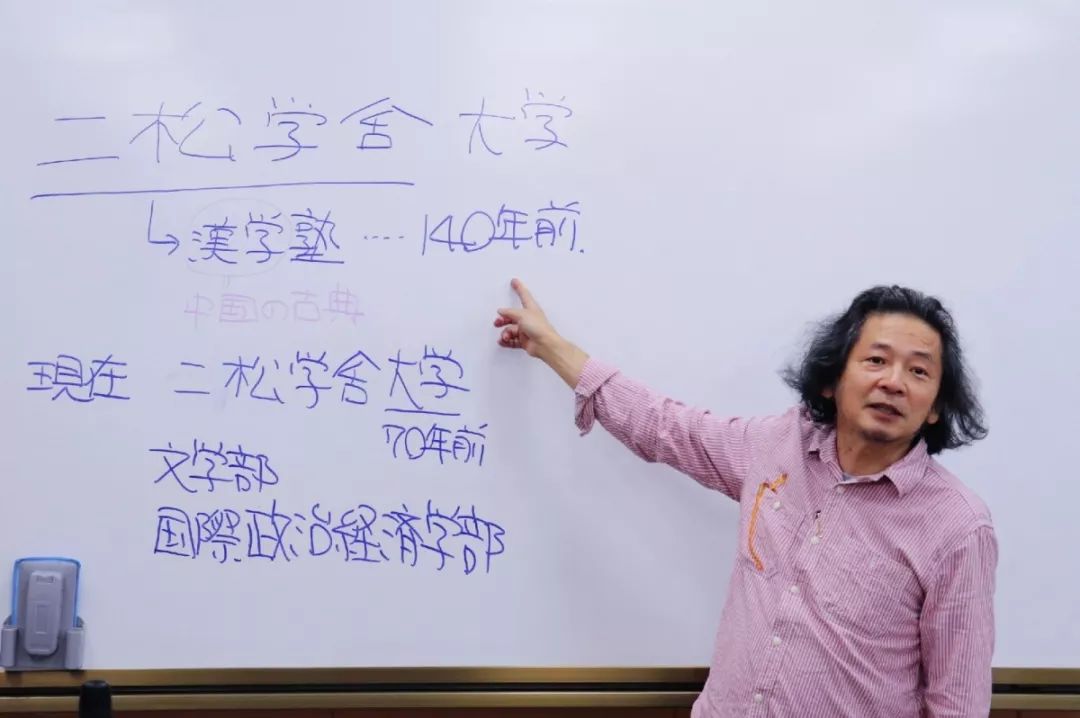 二松学舎大学
漢学塾 .... 140年前.
中国の古典
現在 二松学舎大学
70年前
文学部
国際政治経済学部